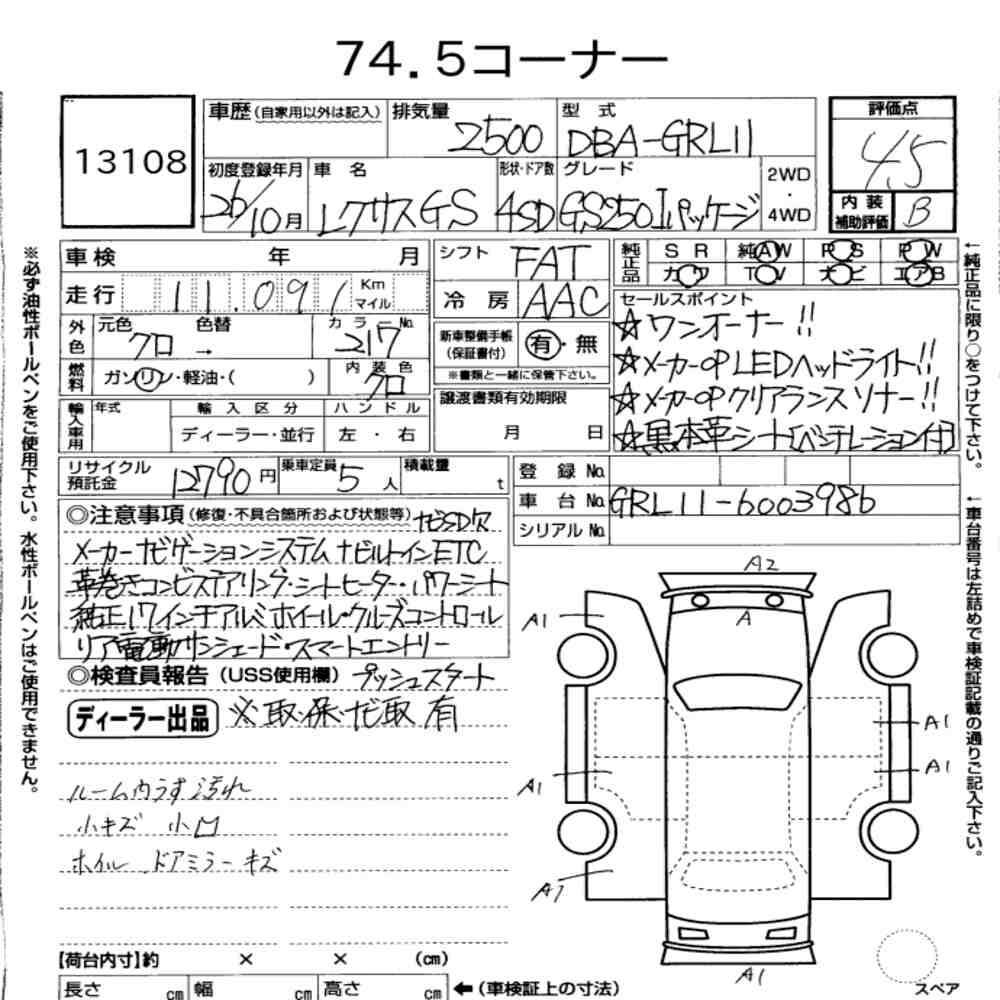 74.5コーナー
13108
車歴(自家用以外は記入)
排気量
2500
型 式
DBA-GRL11
評価点
4.5
初度登録年月
26/10月
車 名
レクサスGS
形状・ドア数
4SD
グレード
GS250Iパッケージ
2WD
・
4WD
内 装
補助評価
B
車検 年 月
走行
11.091
Km
マイル
シフト
FAT
冷 房
AAC
純正品
S R
純AW
P S
P W
カワ
T V
ナビ
エアB
セールスポイント
☆ワンオーナー!!
☆メーカーOP LEDヘッドライト!!
☆メーカーOPクリアランスソナー!!
☆黒本革シート[ベンチレーション付]
外色
元色
クロ
色替
→
カラーNo.
217
新車整備手帳
(保証書付)
有・無
※書類と一緒に保管下さい。
燃料
ガソリン・軽油・( )
内装色
クロ
譲渡書類有効期限
月 日
輸入車用
年式
輸 入 区 分
ディーラー・並行
ハ ン ド ル
左 ・ 右
リサイクル
預託金
12790円
乗車定員
5人
積載量
t
登 録 No.
車 台 No.
GRL11-6003986
シリアル No.
◎注意事項(修復・不具合箇所および状態等)ナビSD欠
メーカーナビゲーションシステム ナビルトインETC
革巻きコンビステアリング・シートヒーター・パワーシート
純正17インチアルミホイール・クルーズコントロール
リア電動サンシェード・スマートエントリー
◎検査員報告(USS使用欄)プッシュスタート
ディーラー出品
※取・保・ナビ取 有
ルーム内うす汚れ
小キズ 小凹
ホイル ドアミラーキズ
A2
A
A1
A1
A1
A1
A1
A1
【荷台内寸】約 × × (cm)
長さ cm
幅 cm
高さ cm
←(車検証上の寸法)
スペア
※必ず油性ボールペンをご使用下さい。水性ボールペンはご使用できません。
←純正品に限り○をつけて下さい。
←車台番号は左詰めで車検証記載の通りご記入下さい。